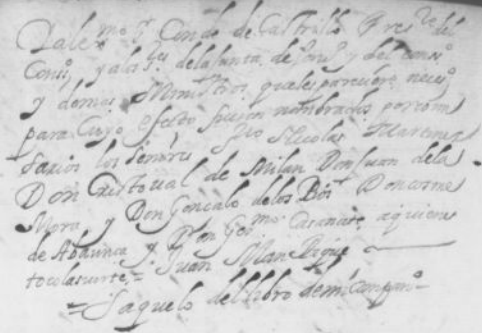 Dale x.mo S.r Conde de Castrillo Pres.te del
Cons.o y alos s.res dela Junta de y del cons.o
y demas Ministros quales pareciere neces.o
para Cuyo efecto fueron nombrados por com
los Señores Nicolas Martinez
Don Cristoual de Milan Don Juan dela
Mora y Don Gonçalo delos Rios Don cosme
de Abaunça y Don Ger.mo Casanate, a quienes
toco la suerte = Juan Manrrique
= Saquelo del libro de mi compañ.o